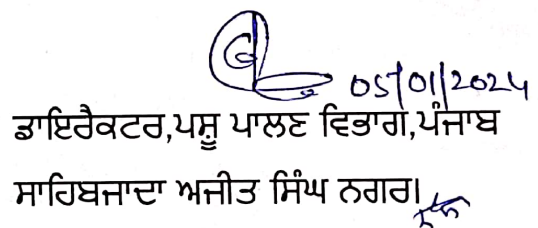 05/01/2024
ਡਾਇਰੈਕਟਰ,ਪਸ਼ੂ ਪਾਲਣ ਵਿਭਾਗ,ਪੰਜਾਬ
ਸਾਹਿਬਜਾਦਾ ਅਜੀਤ ਸਿੰਘ ਨਗਰ।